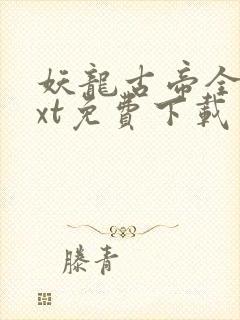 妖龍古帝全
xt免費下載
滕青